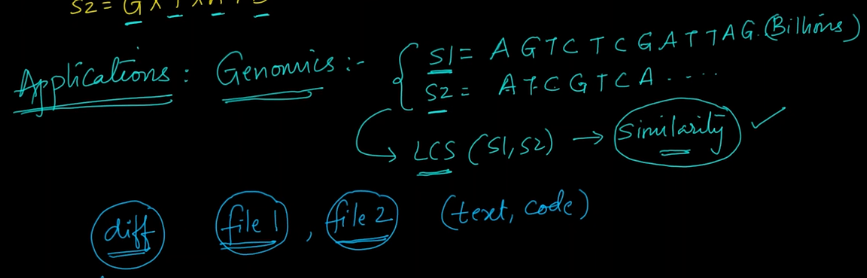 S2 = G X T X
Applications : Genomics :- S1 = A G T C T C G A T T A G. (Billions)
S2 = A T C G T C A . . . .
LCS (S1, S2) → Similarity ✓
diff file 1 , file 2 (text, code)